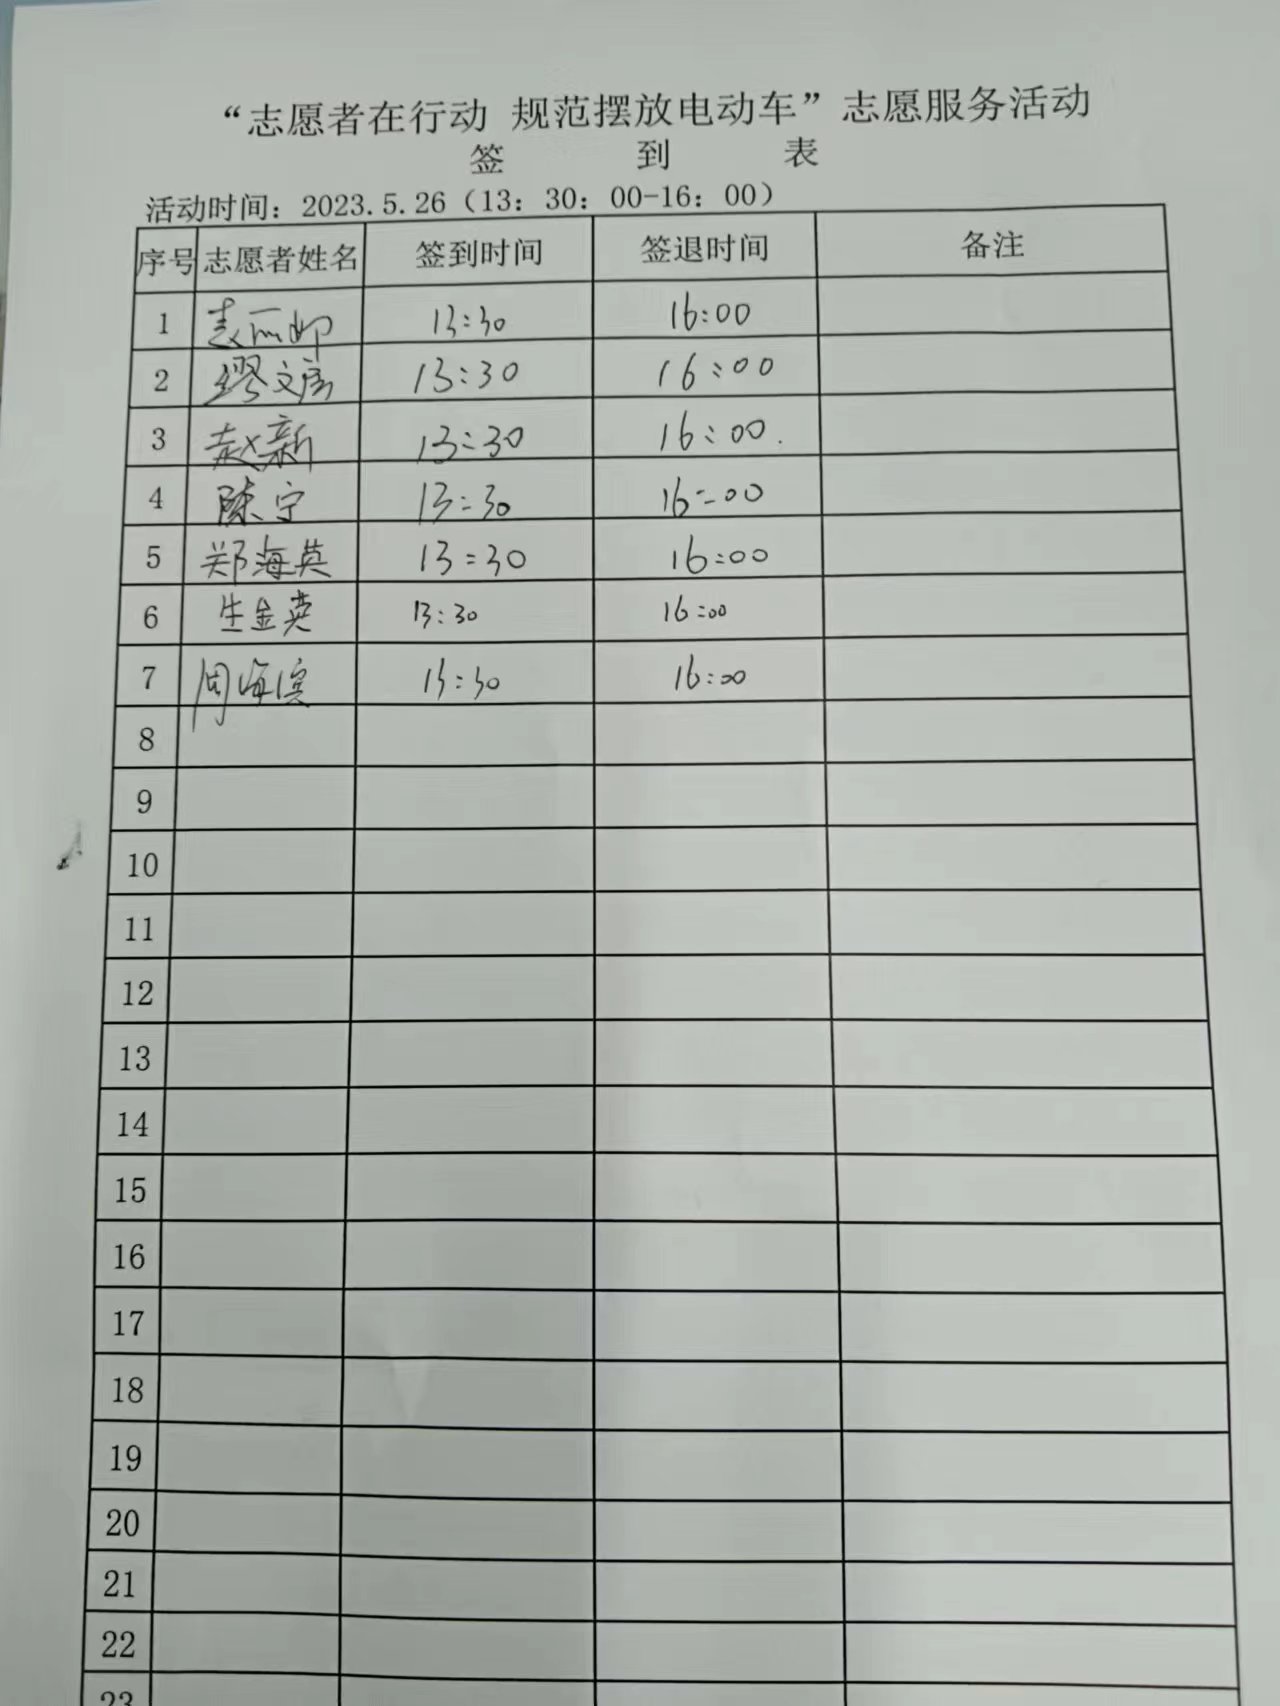 “志愿者在行动 规范摆放电动车”志愿服务活动
签 到 表
活动时间：2023.5.26（13：30：00-16：00）
序号 志愿者姓名 签到时间 签退时间 备注
1 13:30 16:00
2 缪文 13:30 16:00
3 赵新 13:30 16:00.
4 陈宁 13:30 16:00
5 郑海英 13:30 16:00
6 生金英 13:30 16:00
7 周海滨 13:30 16:00
8
9
10
11
12
13
14
15
16
17
18
19
20
21
22
23